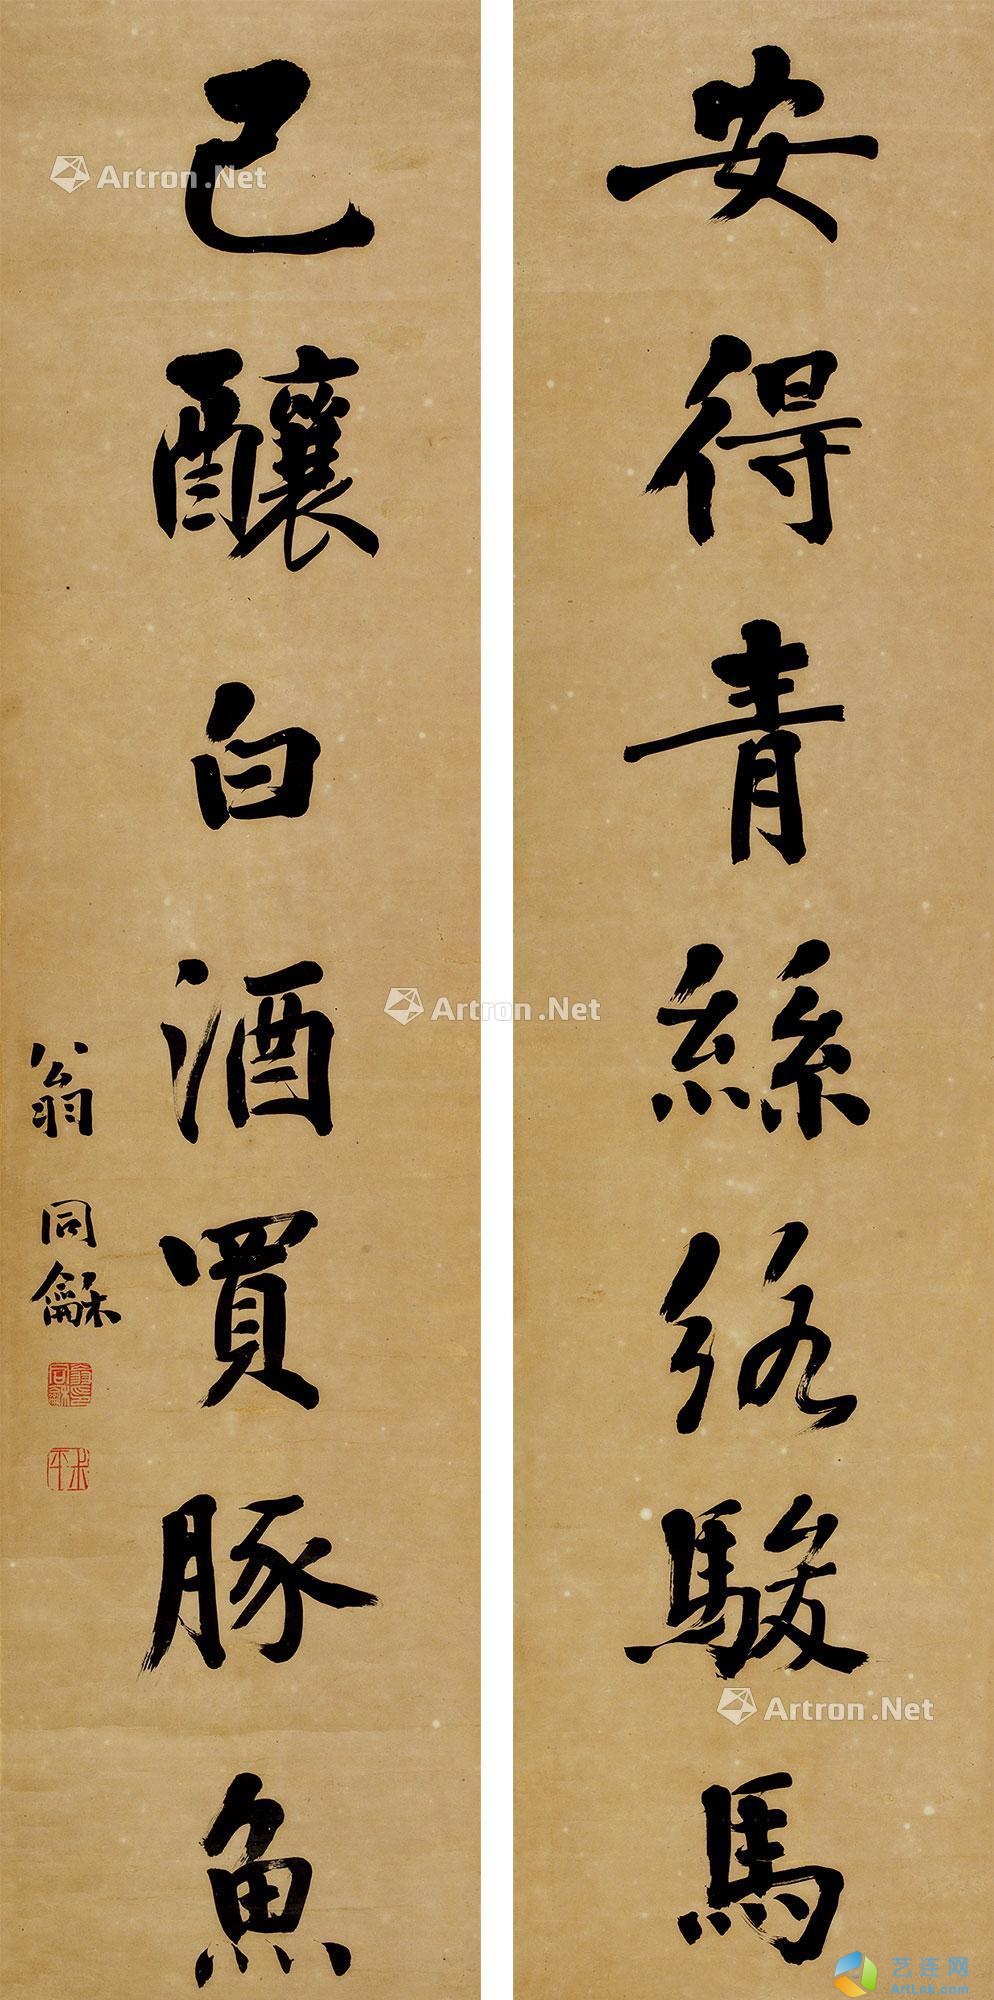 安得青絲絡駿馬
已釀白酒買豚魚
翁同龢
翁同龢印
叔平
Artron.Net
Artron.Net
Artron.Net
艺连网
ArtLnk.com